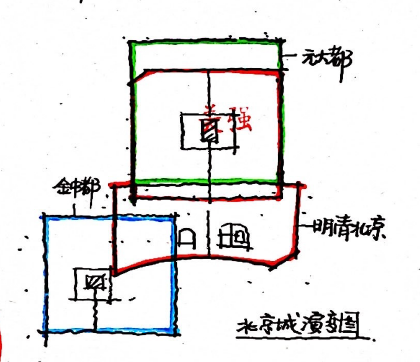 元大都
姜强
金中都
明清北京
北京城演变图